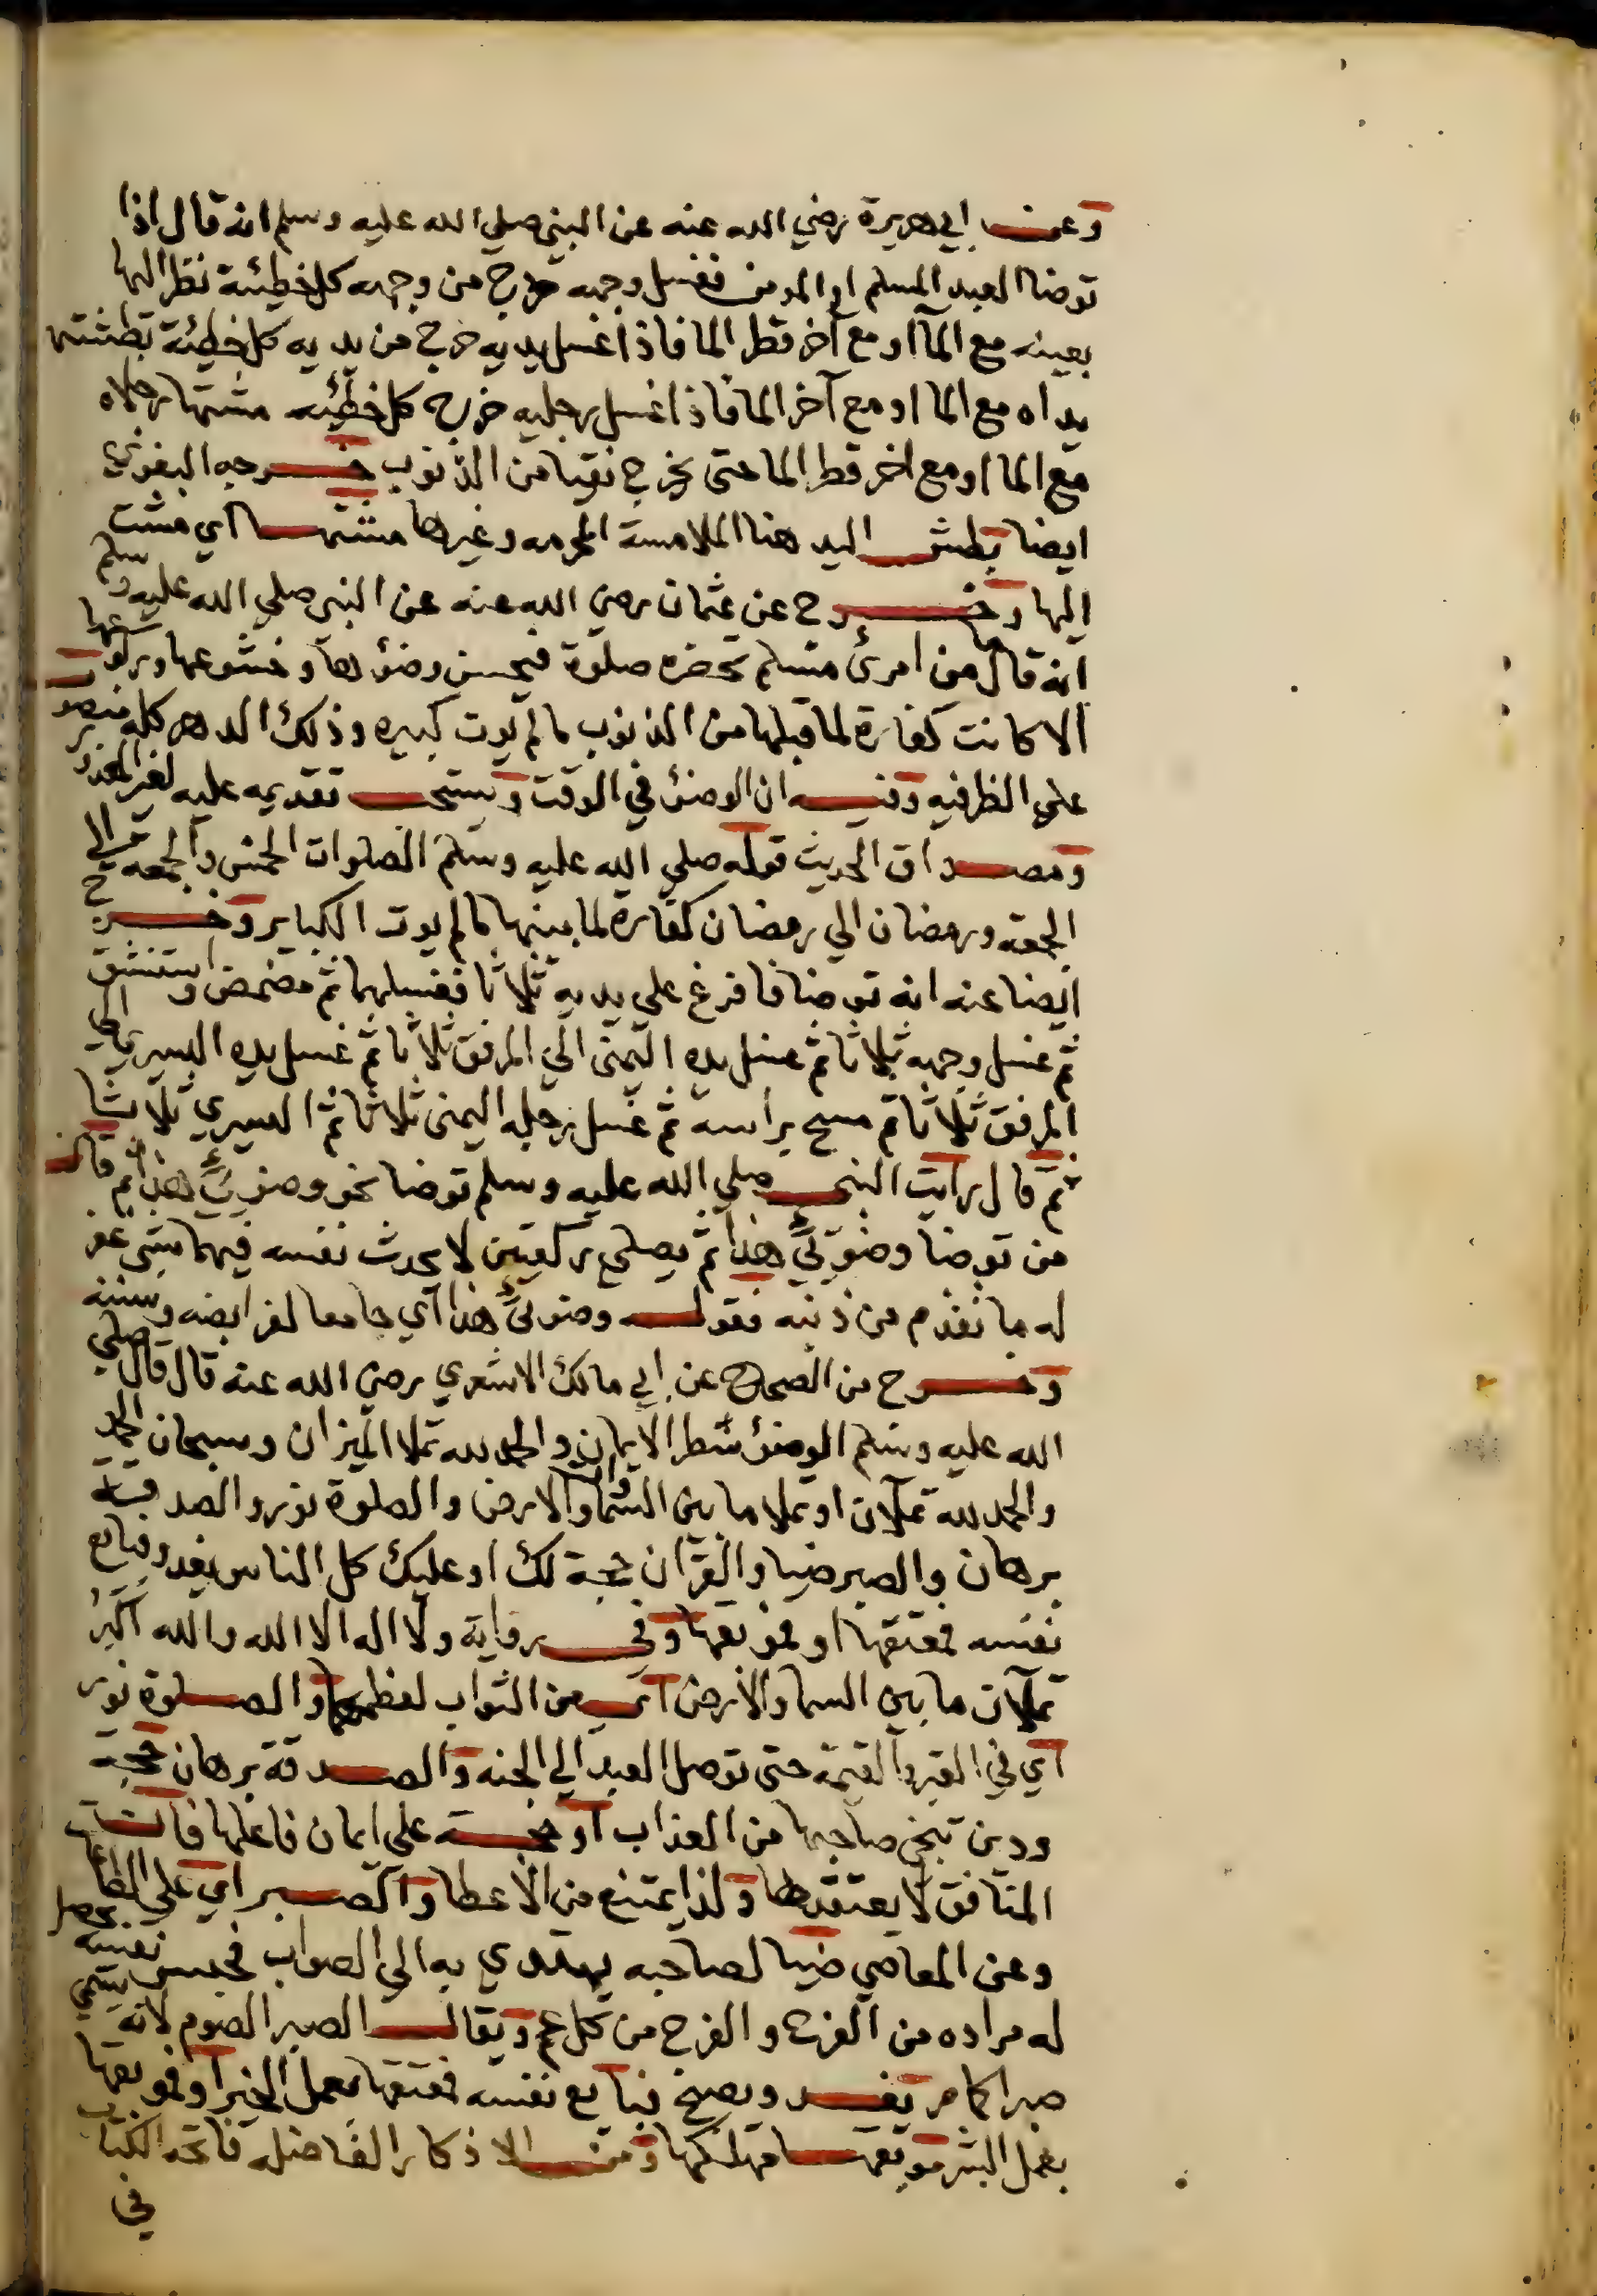 وعن ابي هريرة رضي الله عنه عن النبي صلي الله عليه وسلم انه قال اذا
توضا العبد المسلم او المومن فغسل وجهه خرج من وجهه كل خطيئة نظر اليها
بعينه مع المآ او مع آخر قطر الما فاذا غسل يديه خرج من يديه كل خطيئة بطشتها
يداه مع الما او مع آخر الما فاذا غسل رجليه خرج كل خطيئه مشتها رجلاه
مع الما او مع اخر قطر الما حتى يخرج نقيا من الذنوب خرجه البغوي
ايضا بطش اليد هنا الملامسة المحرمه وغيرها مشتها اي مشت
اليها وخرج عن عثمان رضي الله عنه عن النبي صلي الله عليه وسلم
انه قال ما من امرئ مسلم تحضره صلوة فيحسن وضؤها وخشوعها وركوعها
الا كانت كفارة لما قبلها من الذنوب ما لم يوت كبيره وذلك الدهر كله منصوب
علي الظرفيه وفيه ان الوضؤ في الوقت ويستحب تقديمه عليه لغير المعذور
ومصداق الحديث قوله صلي الله عليه وسلم الصلوات الخمس والجمعة الي
الجمعه ورمضان الي رمضان كفارة لما بينها ما لم يوت الكباير وخرج
ايضا عنه انه توضا فافرغ علي يديه ثلاثا فغسلهما ثم مضمض واستنشق
ثم غسل وجهه ثلاثا ثم غسل يده اليمنى الي المرفق ثلاثا ثم غسل يده اليسري الي
المرفق ثلاثا ثم مسح براسه ثم غسل رجله اليمنى ثلاثا ثم اليسري ثلاثا
ثم قال رايت النبي صلي الله عليه وسلم توضا نحو وضوئي هذا ثم قال
من توضا وضوئي هذا ثم يصلي ركعتين لا يحدث نفسه فيهما بشي غفر
له ما تقدم من ذنبه فقوله وضوئي هذا اي جامعا لفرايضه وسننه
وخرج من الصحاح عن ابي مالك الاشعري رضي الله عنه قال قال صلي
الله عليه وسلم الوضؤ شطر الايمان والحمد لله تملا الميزان وسبحان الله
والحمد لله تملآن او تملا ما بين السموات والارض والصلوة نور والصدقة
برهان والصبر ضيا والقرآن حجة لك او عليك كل الناس يغدو فبايع
نفسه فمعتقها او موبقها وفي رواية ولا اله الا الله والله اكبر
تملآن ما بين السما والارض اي من الثواب لعظمهما والصلوة نور
اي في القبر والقيمة حتى توصل العبد الي الجنه والصدقة برهان حجة
ودين تنجي صاحبها من العذاب او حجة علي ايمان فاعلها فان
المنافق لا يعتقدها ولذا يمتنع من الاعطا والصبر اي علي الطاعات
وعن المعاصي ضيا لصاحبه يهتدي به الي الصواب فحبس نفسه يحصل
له مراده من الفرح والفرج من كل غم ويقال الصبر الصوم لانه يسمي
صبرا كما مر يغدو يصبح فبايع نفسه فمعتقها بعمل الخير او موبقها
بعمل الشر موبقها مهلكها ومن الاذكار الفاضله فاتحه الكتاب
في